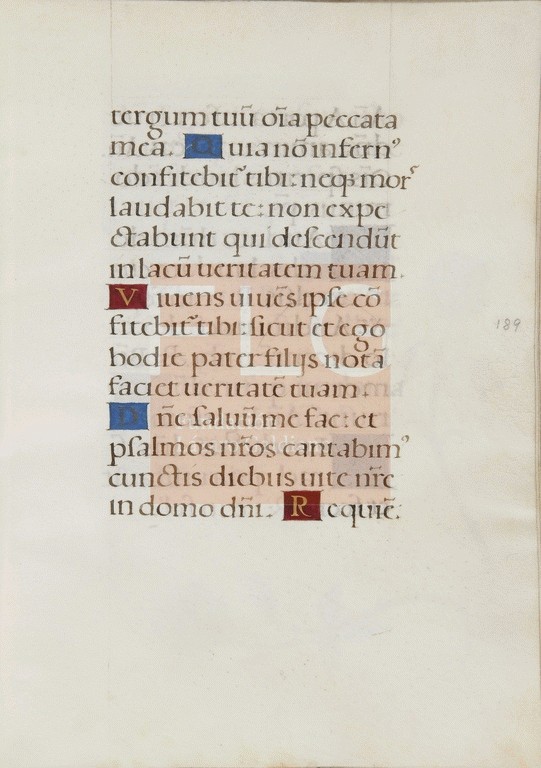 tergum tuū oīa peccata
mea. Quia nō infernꝰ
confitebit᷑ tibi: neqꝫ mor᷑
laudabit te: non expe
ctabunt qui descendūt
in lacū ueritatem tuam.
Viuens uiuēs ipse cō
fitebit᷑ tibi: sicut et ego
hodie pater filijs notā
faciet ueritatē tuam.
Dn̄e saluū me fac: et
psalmos nr̄os cantabimꝰ
cunctis diebus uite nr̄e
in domo dn̄i. Requiē.
189
FLG